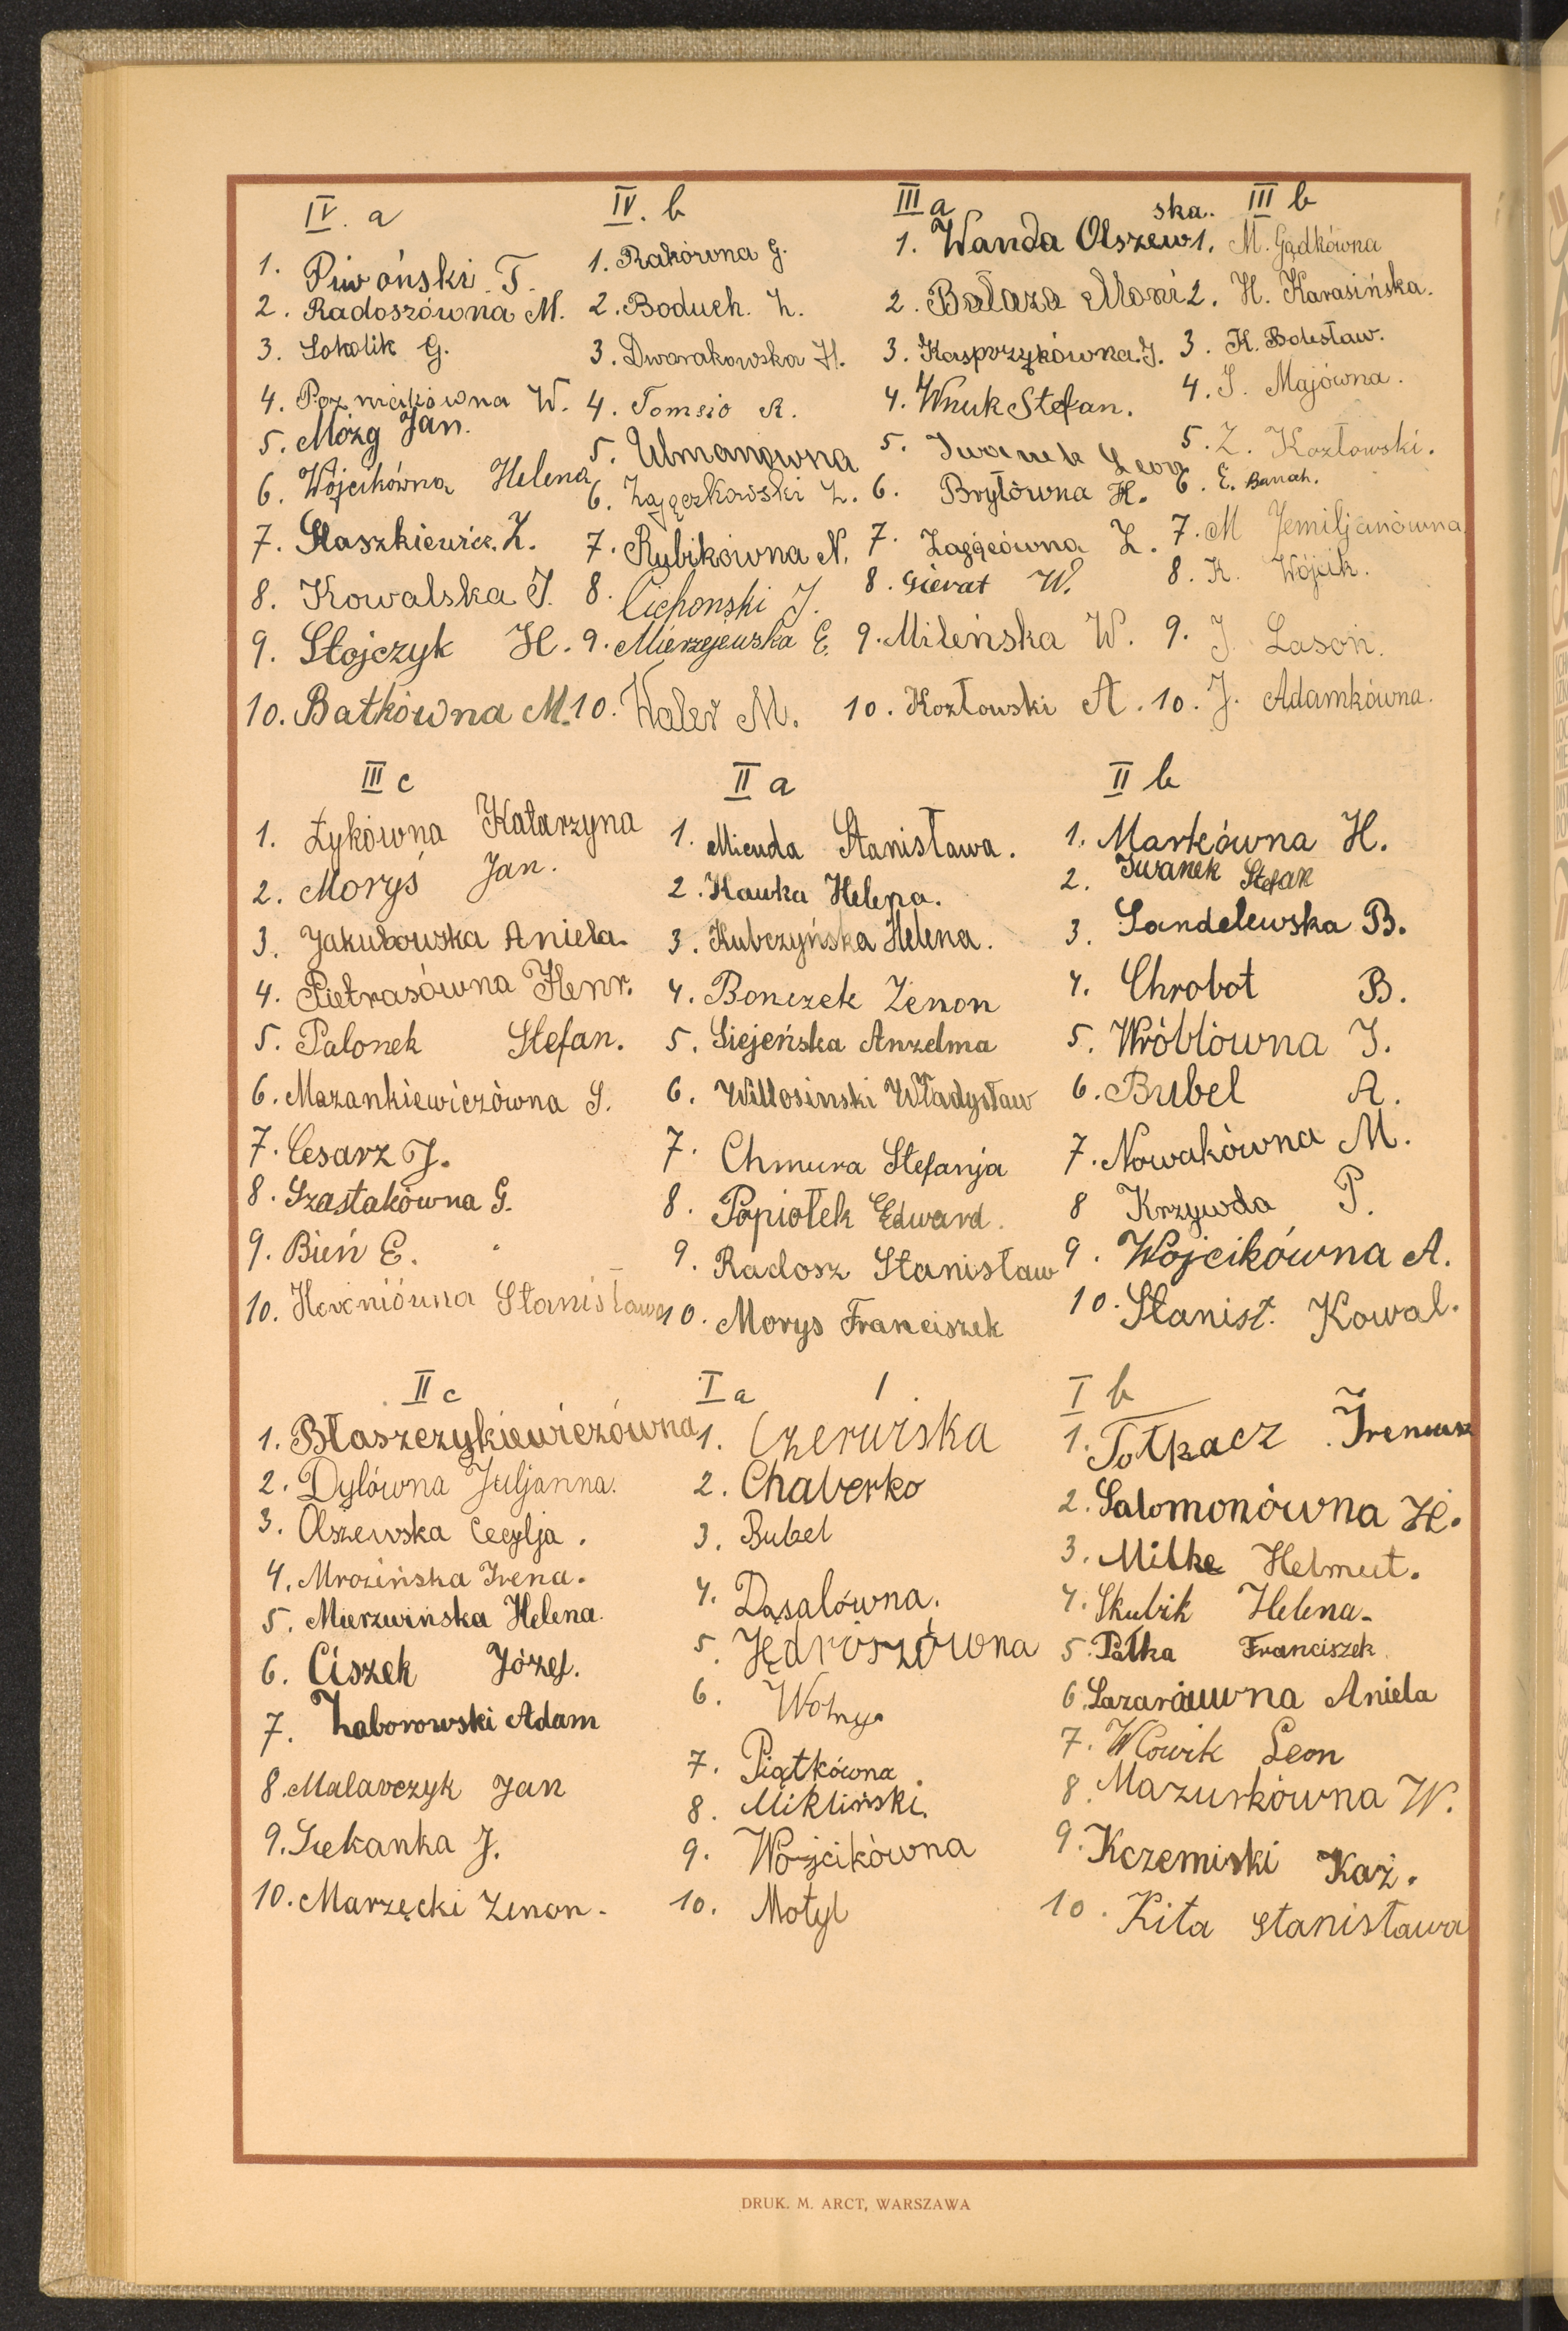 IV. a
1. Piwoński T.
2. Radoszówna M.
3. Sokolik G.
4. W.
5. Mózg Jan.
6. Wójcikówna Helena
7. Staszkiewicz. Z.
8. Kowalska J.
9. Stojczyk H.
10. Batkówna M.
IV. b
1. Rakówna G.
2. Boduch. Z.
3. Dwarakowska H.
4. Tomsio R.
5. Ulmanówna
6. Zajączkowski Z.
7. Rubikówna N.
8. Cichonski J.
9. Mierzejewska E.
10. Waler M.
III a
1. Wanda Olszewska.
2. Bałaza Moni
3. Kasprzykówna. J.
4. Wnuk Stefan.
5. Iwanek Leon
6. Bryłówna H.
7. Zającówna Z.
8. Gierat W.
9. Mileńska W.
10. Kozłowski A.
III b
1. M. Gądkówna
2. H. Karasińska.
3. K. Bolesław.
4. J. Majówna.
5. Z. Kozłowski.
6. E. Banach.
7. M Jemiljanówna
8. K. Wójcik.
9. J. Lasoń.
10. J. Adamkówna.
III c
1. Łykówna Katarzyna
2. Moryś Jan.
3. Jakubowska Aniela.
4. Pietrasówna Henr.
5. Palonek Stefan.
6. Mazankiewiczówna S.
7. Cesarz J.
8. Szastakówna G.
9. Bień E.
10. Stanisława
II a
1. Micuda Stanisława.
2. Kawka Helena.
3. Kubczyńska Helena.
4. Bonczek Zenon
5. Siejeńska Anzelma
6. Willosinski Władysław
7. Chmura Stefanja
8. Popiołek Edward.
9. Radosz Stanisław
10. Morys Franciszek
II b
1. Markówna H.
2. Iwanek Stefan
3. Sandelewska B.
4. Chrobot B.
5. Wróblówna J.
6. Bubel A.
7. Nowakówna M.
8 Krzywda P.
9. Wojcikówna A.
10. Stanisł. Kowal.
II c
1. Błaszczykiewiczówna
2. Dylówna Juljanna.
3. Olszewska Cecylja.
4. Mrozińska Irena.
5. Mierzwińska Helena.
6. Ciszek Józef.
7. Zaborowski Adam
8. Malarczyk Jan
9. Siekanka J.
10. Marzęcki Zenon.
I a
1. Czerwiska
2. Chaberko
3. Bubel
4. Dąsalówna.
5. Jędroszówna
6. Wolny.
7. Piątkówna.
8. Mikliński.
9. Wojcikówna
10. Motyl
I b
1. Totkacz Ireneusz
2. Salomonówna H.
3. Milke Helmut.
4. Skubik Helena.
5. Pałka Franciszek.
6. Aniela
7. Leon
8. Mazurkówna W.
9. Kczemiski Kaź.
10. Kita Stanisława
DRUK. M. ARCT, WARSZAWA